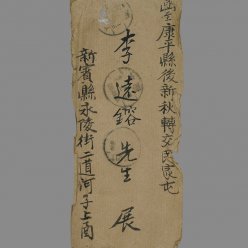 康平縣後新秋轉交民家屯
李遠鎔先生 展
新賓縣永陵街二道河子上